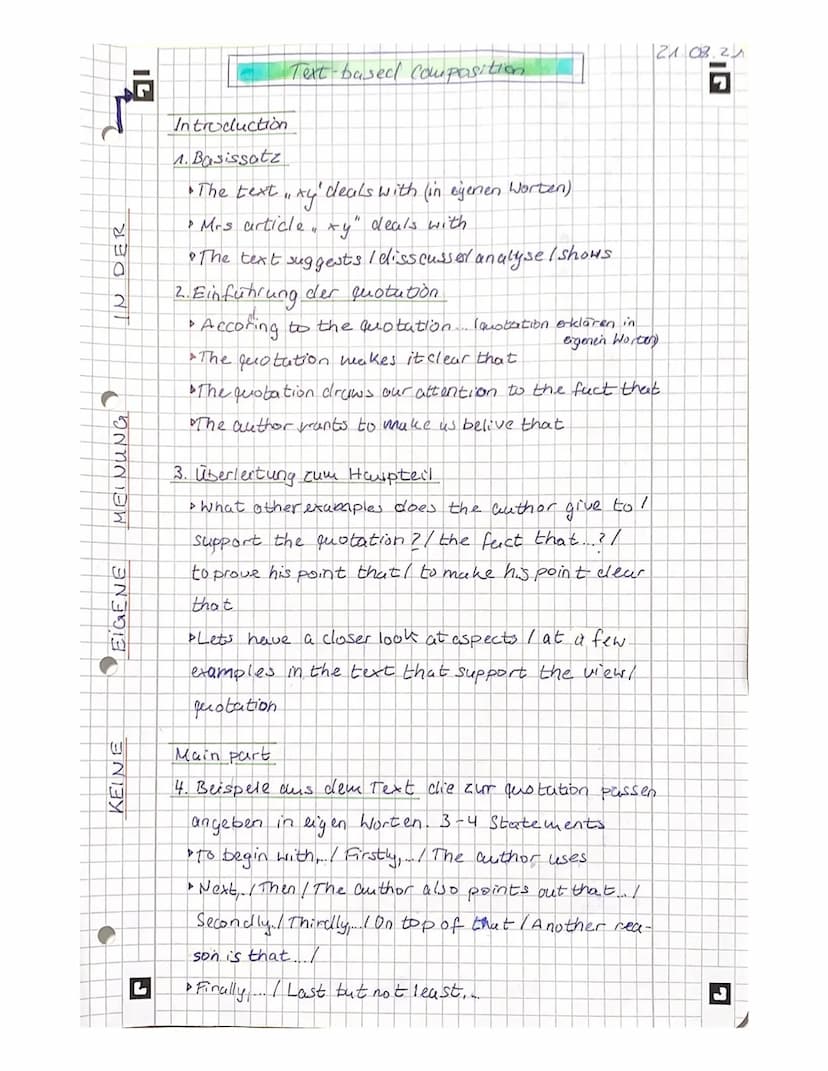 21.08.21
Text-based Composition
Introduction
1. Basissatz
▸The text „xy' deals with (in eigenen Worten)
▸Mrs article „xy" deals with
▸The text suggests / disscusses/ analyse / shows
2. Einführung der quotation
▸Accoring to the quotation... (quotation erklären in
d
eigenen Worten)
▸The quotation makes it clear that
▸The quotation draws our attention to the fact that
▸The author wants to make us belive that
3. Überleitung zum Hauptteil
▸What other examples does the author give to /
support the quotation ? / the fact that...? /
to prove his point that / to make his point clear
that
▸Lets have a closer look at aspects / at a few
examples in the text that support the view /
quotation
Main part
4. Beispele aus dem Text die zur quotation passen
angeben in eigen Worten. 3-4 Statements
▸To begin with,.. / Firstly,... / The author uses
▸Next,. / Then / The author also points out that... /
Secondly. / Thirdly,... / On top of that / Another rea-
son is that... /
▸Finally,... / Last but not least,..
KEINE EIGENE MEINUNG IN DER